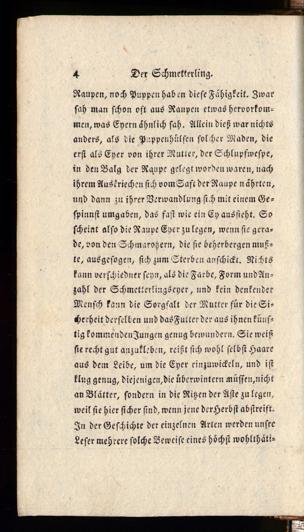 4 Der Schmetterling.
Raupen, noch Puppen haben diese Fähigkeit. Zwar
sah man schon oft aus Raupen etwas hervorkom-
men, was Eyern ähnlich sah. Allein dieß war nichts
anders, als die Puppenhülsen solcher Maden, die
erst als Eyer von ihrer Mutter, der Schlupfwespe,
in den Balg der Raupe gelegt worden waren, nach
ihrem Auskriechen sich vom Saft der Raupe nährten,
und dann zu ihrer Verwandlung sich mit einem Ge-
spinnst umgaben, das fast wie ein Ey aussieht. So
scheint also die Raupe Eyer zu legen, wenn sie gera-
de, von den Schmarozern, die sie beherbergen muß-
te, ausgesogen, sich zum Sterben anschickt. Nichts
kann verschiedner seyn, als die Farbe, Form und An-
zahl der Schmetterlingseyer, und kein denkender
Mensch kann die Sorgfalt der Mutter für die Si-
cherheit derselben und das Futter der aus ihnen künf-
tig kommenden Jungen genug bewundern. Sie weiß
sie recht gut anzukleben, reißt sich wohl selbst Haare
aus dem Leibe, um die Eyer einzuwickeln, und ist
klug genug, diejenigen, die überwintern müssen, nicht
an Blätter, sondern in die Ritzen der Äste zu legen,
weil sie hier sicher sind, wenn jene der Herbst abstreift.
In der Geschichte der einzelnen Arten werden unsre
Leser mehrere solche Beweise eines höchst wohlthäti-